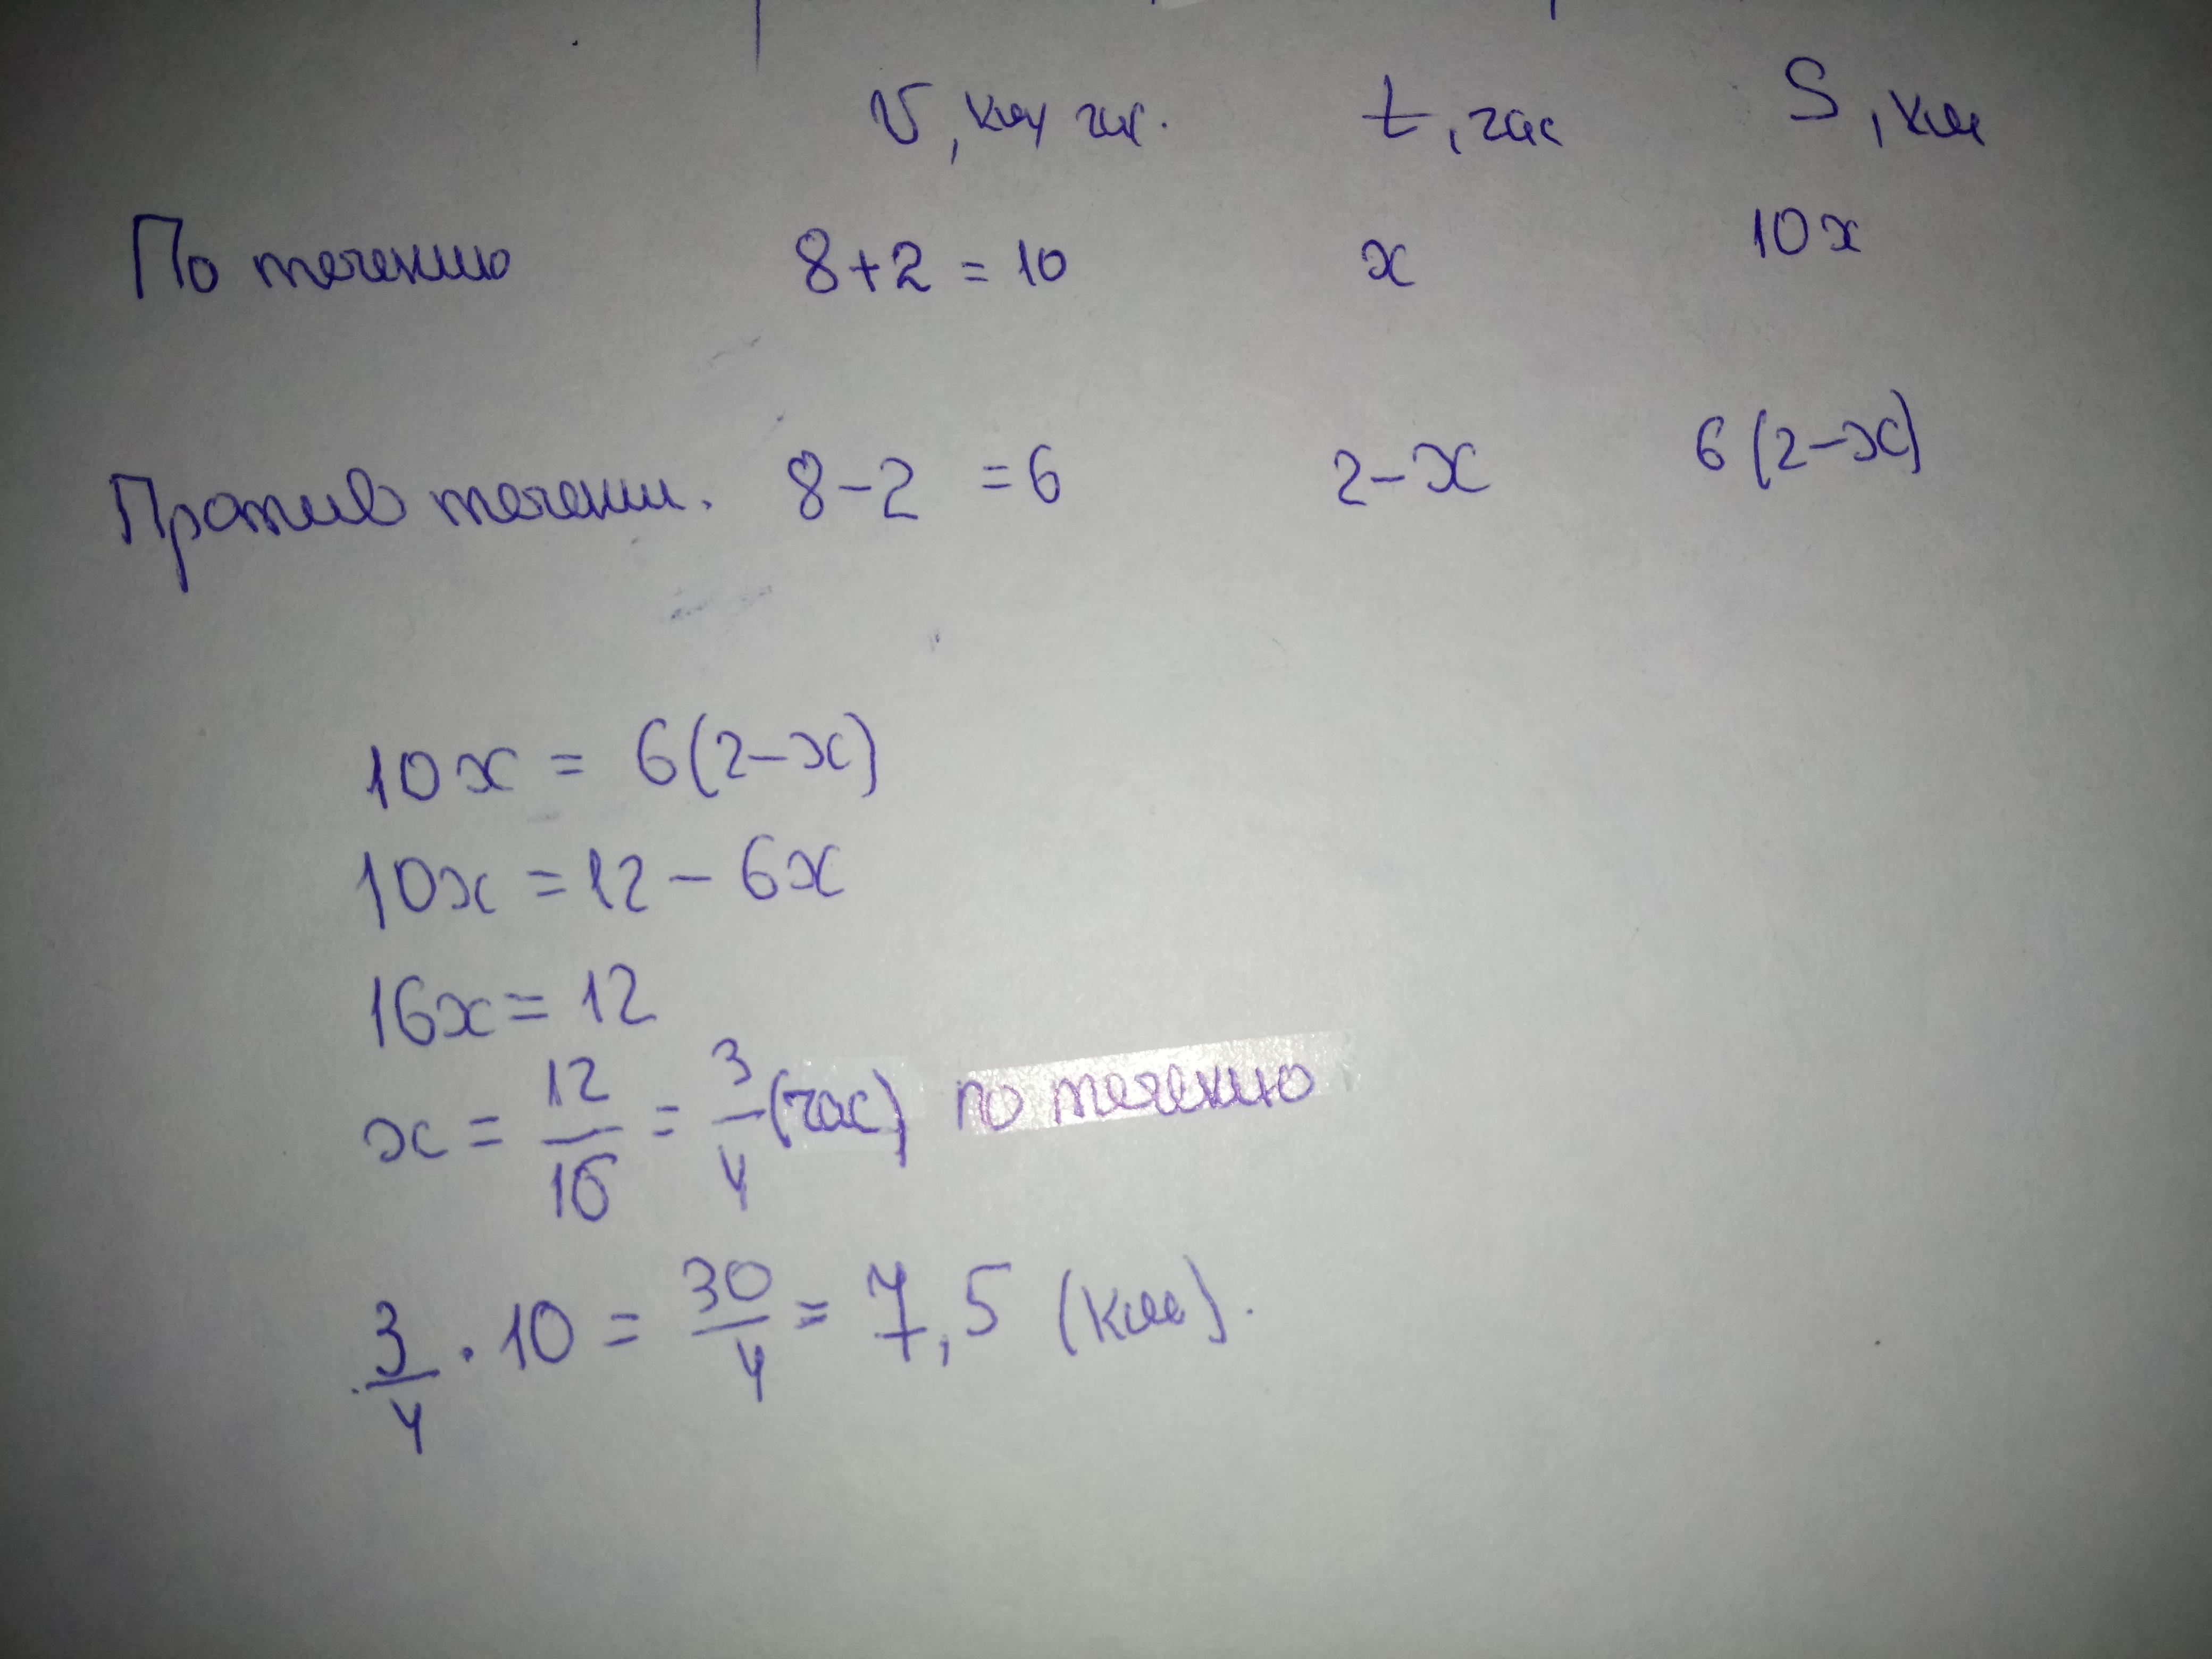 v, км/час. t, час S, км
По течению 8+2 = 10 x 10x
Против течени. 8-2 =6 2-x 6(2-x)
10x = 6(2-x)
10x = 12 - 6x
16x = 12
x = 12/16 = 3/4 (час) по течению
3/4 · 10 = 30/4 = 7,5 (км).